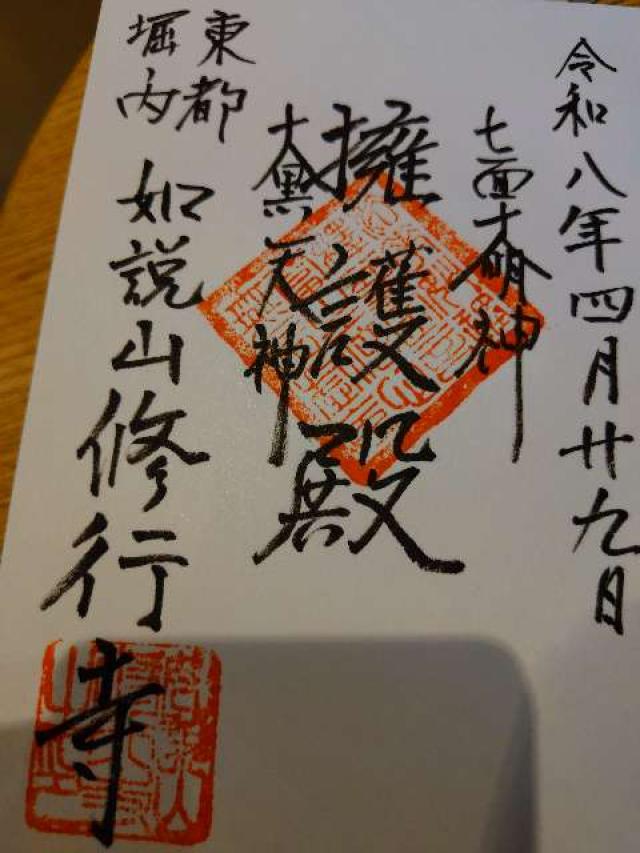 令和八年四月廿九日
七面大明神
擁護殿
大黒天神
東都
堀内
如説山修行寺